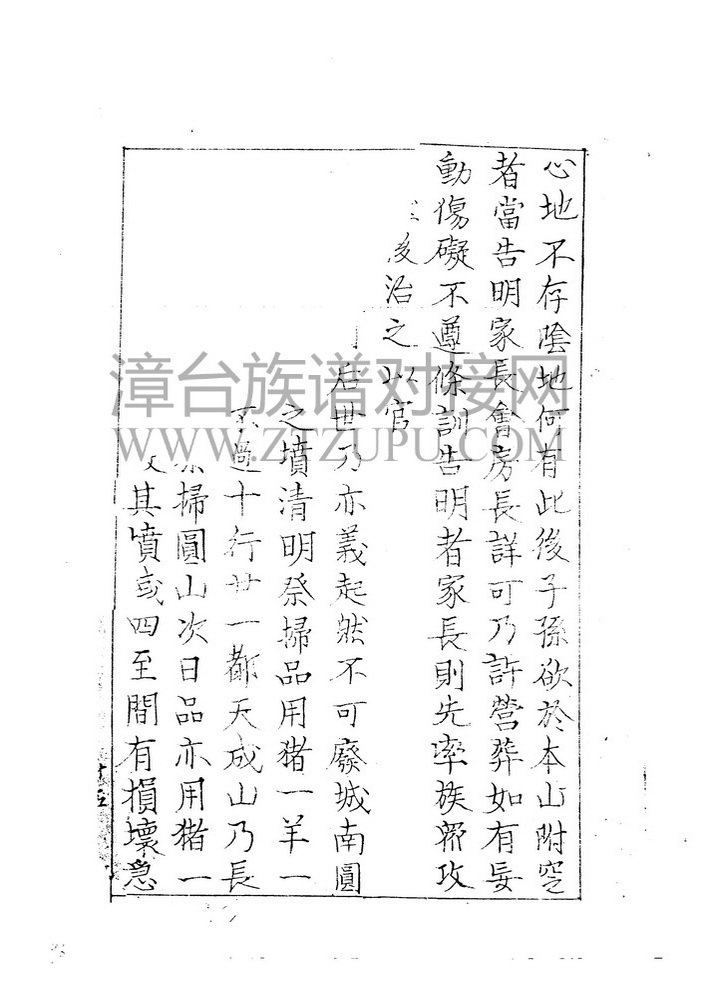 心地不存陰地何有此後子孫欲於本山附窆
者當告明家長會房長詳可乃許營葬如有妄
動傷礙不遵條訓告明者家長則先率族衆攻
後治之以官
后世乃亦義起然不可廢城南圓
之墳清明祭掃品用猪一羊一
不過十行廿一都天成山乃長
掃圓山次日品亦用猪一
其墳或四至間有損壞急
漳台族谱对接网
WWW.ZTZUPU.COM